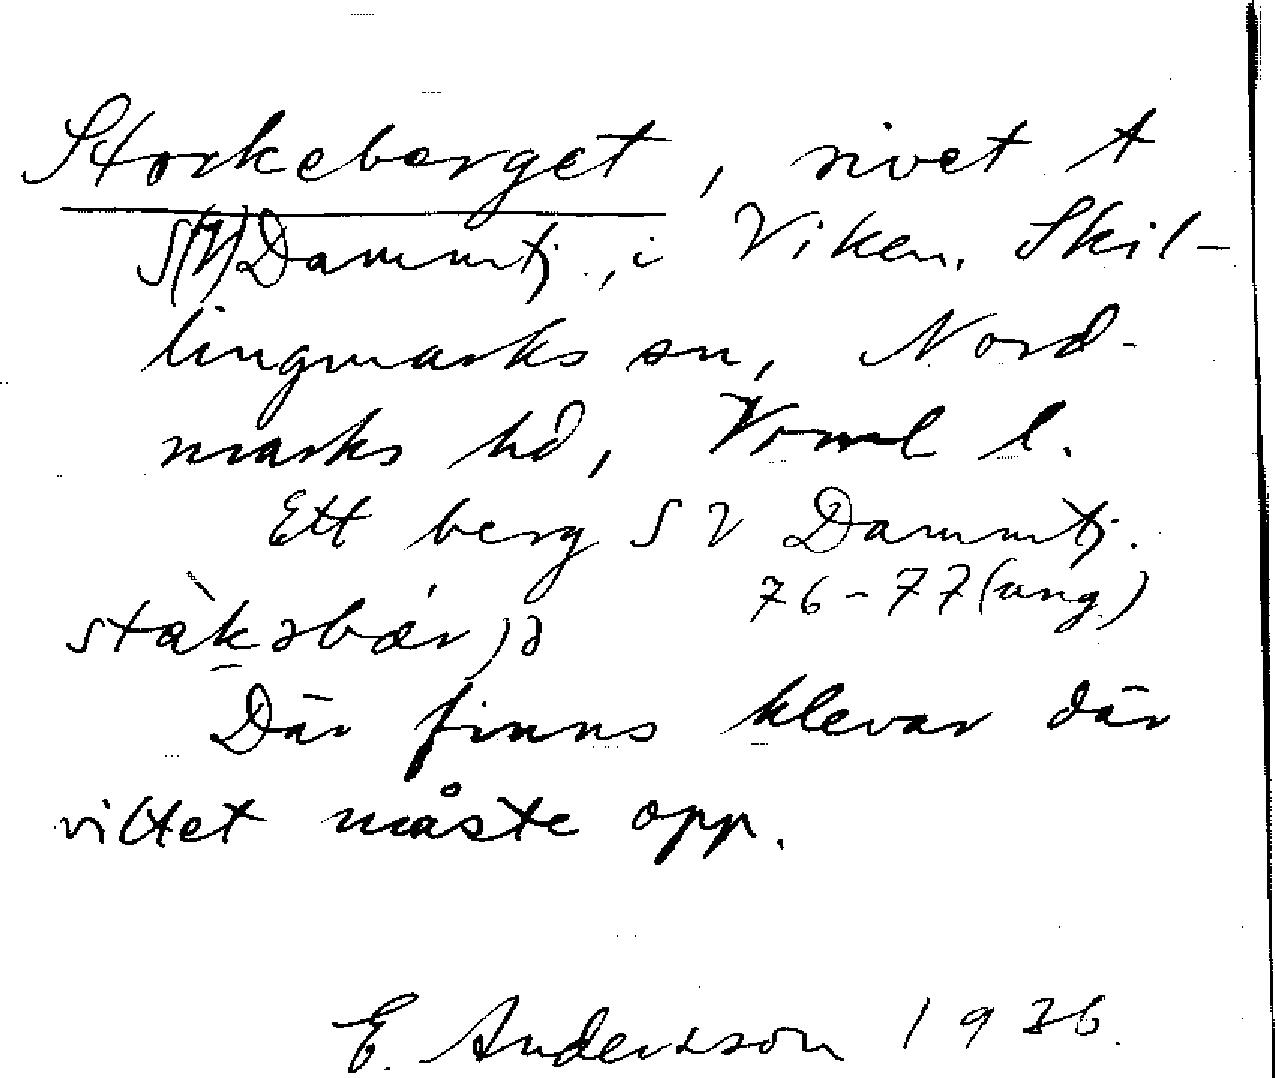 Storkeberget, rivet t
S(V) Dammtj., i Viken, Skil-
lingmarks sn, Nord-
marks hd, Vrml l.
Ett berg SV Dammtj.
76-77 (ung.)
stàkəbær,ə
Där finns klevar där
viltet måste opp.
E. Andersson 1936.